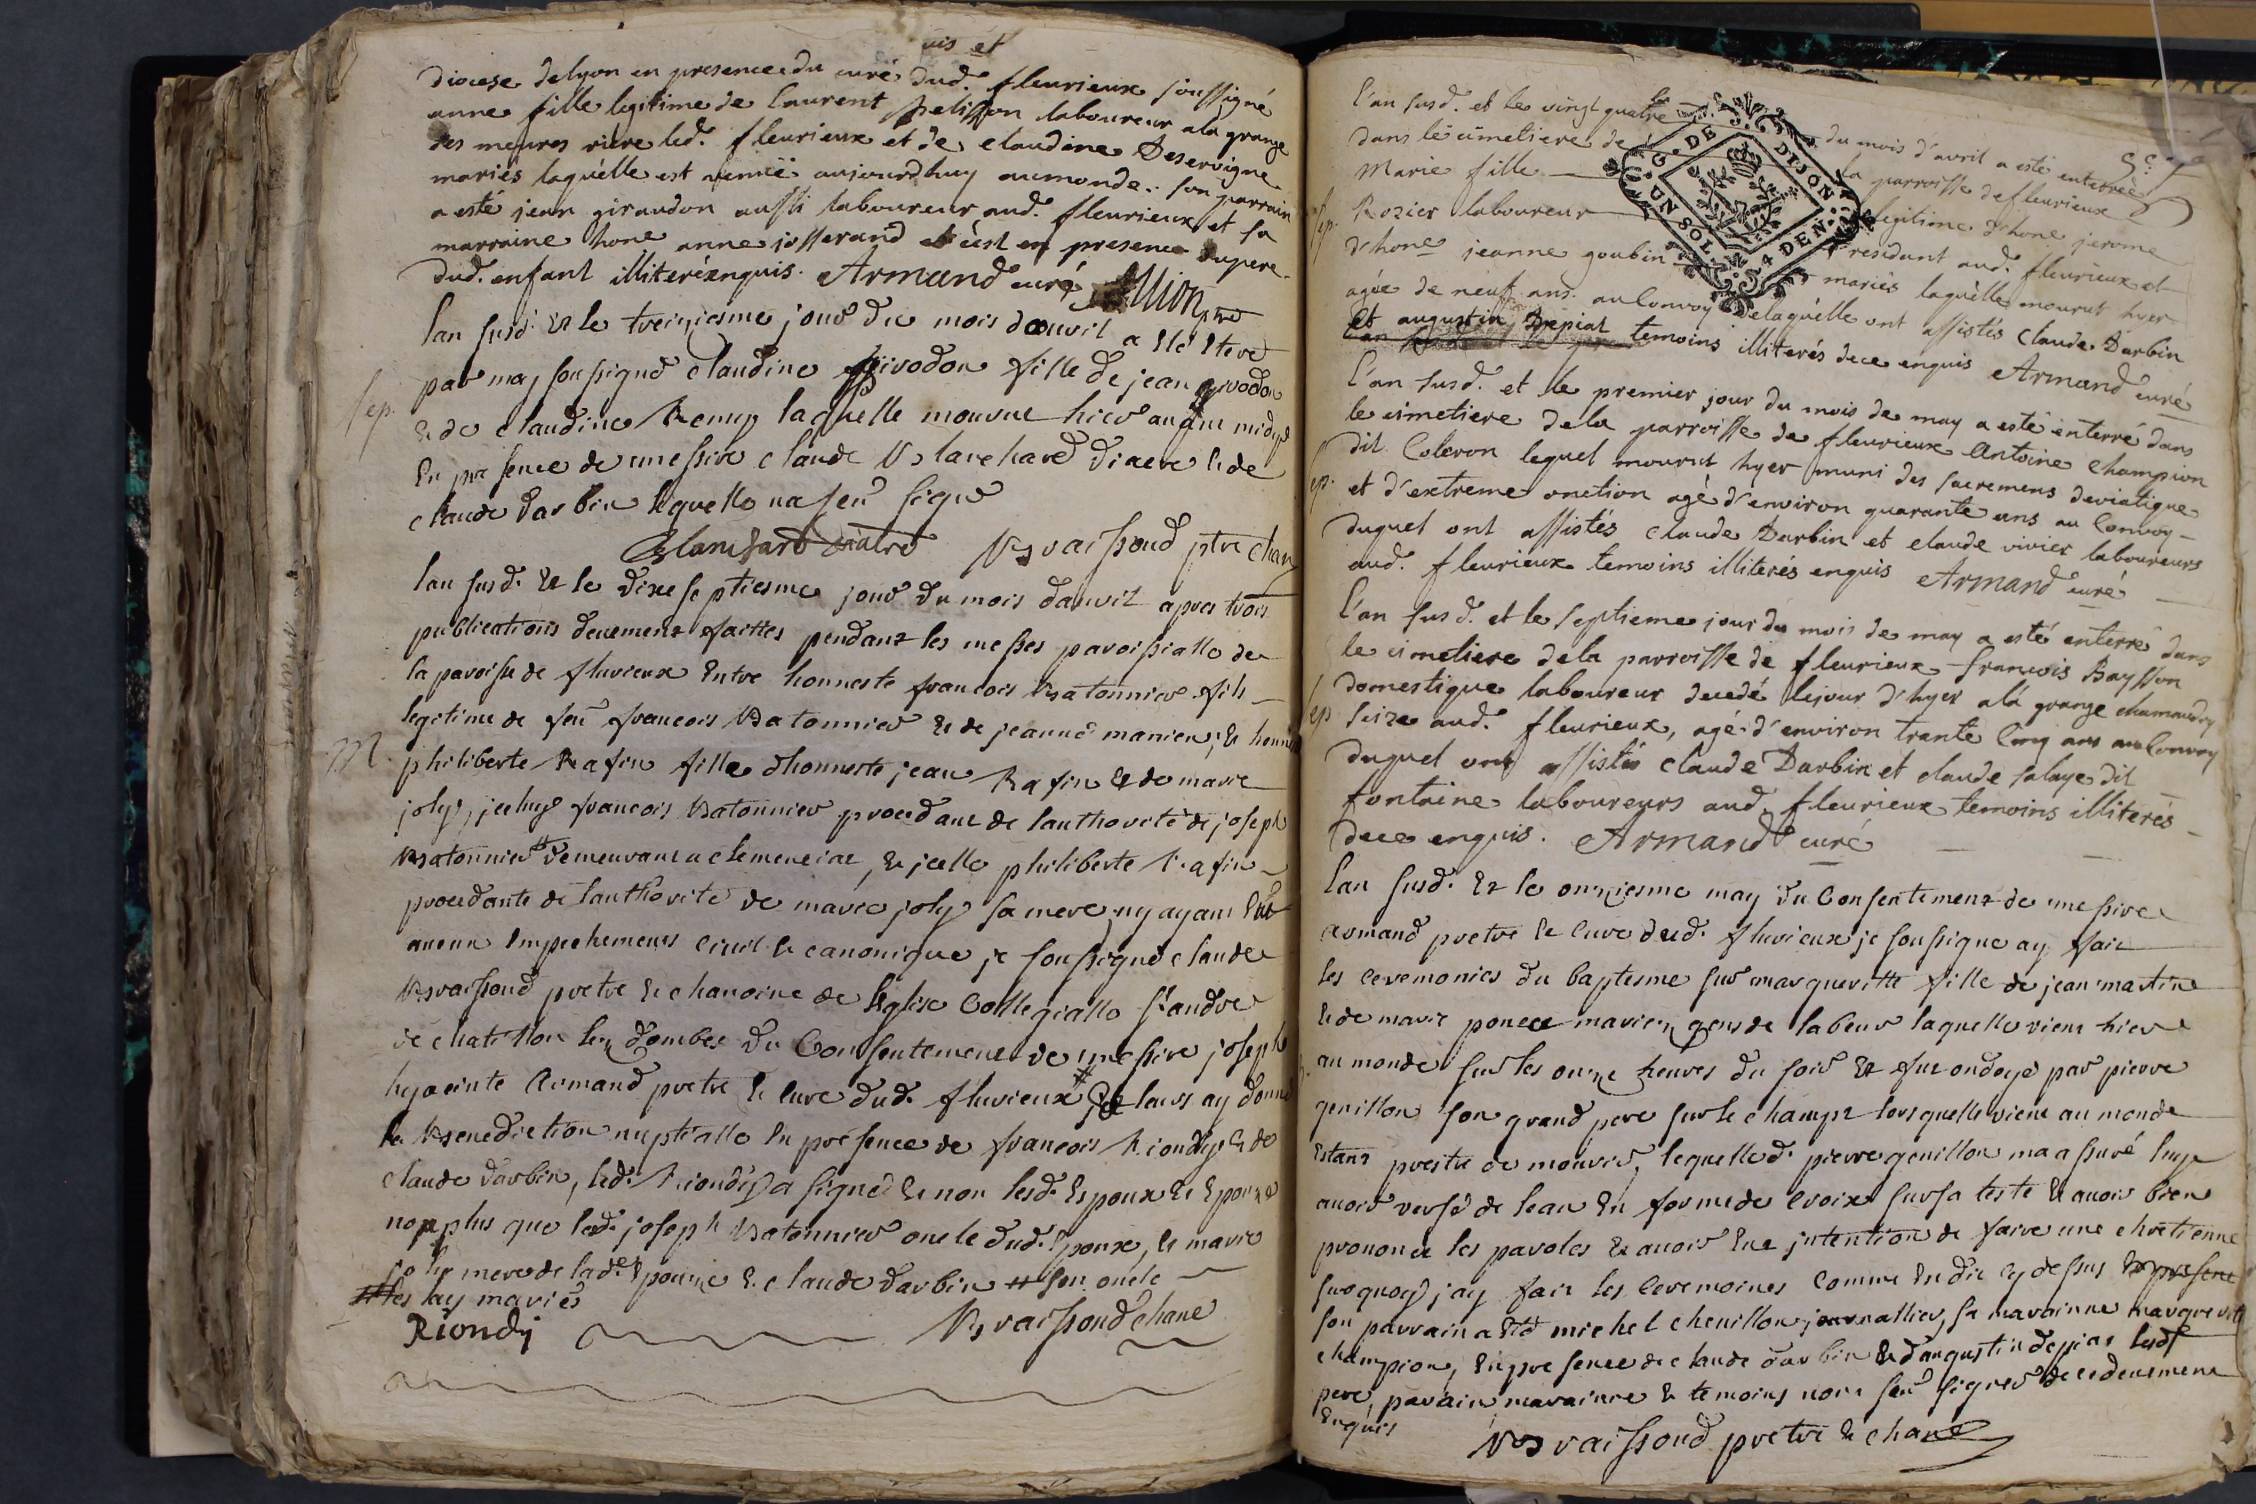 uis et
diocese de lyon en presence du curé dud. fleurieux soussigné
anne fille legitime de laurent pelisson laboureur a la grange
des meures riere led. fleurieux et de claudine Deservigne
mariés laquelle est venüe aujourdhuy au monde. son parrain
a esté jean giraudon aussi laboureur aud. fleurieux et sa
marraine hone anne josserand et c'est en presence du pere
dud. enfant illiteré enquis. Armand curé Allion ptre
lan susd. & le treiziesme jour du mois dauvril a este Entere
sep.
par moy soussigné claudine givodon fille de jean givodon
& de claudine Remy laquelle mourue hier au midy
En presence de messire claude Blanchard diacre & de
claude darbin lequelle na seu signe
Blanchard diacre Bs vaissond ptre chan
lan susd. & le dixe septiesme jour du mois dauvril apres trois
publications deuement faittes pendant les messes paroissialle de
la paroisse de fluvieux Entre honneste francois Batonnier fils
legitime de feu francois Batonnier & de jeanne manien, & honn
M
philiberte Rafin fille dhonneste jean Rafin & de marie
joly, jceluy francois Batonnier procedant de lauthorité de joseph
Batonnier # demeurant a clemenciat, & jcelle philiberte Rafin
procedante de lauthorité de marie joly sa mere, ny ayant Eut
aucun Empechements civil & canonique je soussigné claude
Bs vaissond pretre & chanoine de leglise Collegialle st andre
de chatillon les dombes du Consentement de messire joseph
hyacinte Armand pretre & cure dud. fluvieux # leurs ay donné
la Benediction nuptialle En présence de francois Riondy & de
claude darbin, led. Riondy a signé & non lesd. Epoux & Epouze
non plus que led. joseph Batonnier oncle dud. Epoux, & marie
joly mere de lade Epouze & claude darbin # son oncle
# les ay mariés
Riondy Bs vaissond chane
l'an susd. et le vingt quatre du mois d'avril a esté enterrée
dans le cimetiere de la parroisse de fleurieux
Marie fille legitime d'hone jerome
sep.
Rozier laboureur residant aud. fleurieux et
d'hone jeanne goubin mariés laquelle mourut hyer
agée de neuf ans. au Convoy de laquelle ont assistés Claude Darbin
et augustin Depiat temoins illiterés de ce enquis Armand curé
G. DE DIJON
UN SOL 4 DEN.
l'an susd. et le premier jour du mois de may a esté enterré dans
le cimetiere de la parroisse de fleurieux Antoine Champion
sep.
dit Coleron lequel mourut hyer muni des sacremens de viatique
et d'extreme onction agé d'environ quarante ans au Convoy
duquel ont assistés Claude Darbin et claude vivier laboureurs
aud. fleurieux temoins illiterés enquis Armand curé
l'an susd. et le septieme jour du mois de may a esté enterré dans
le cimetiere de la parroisse de fleurieux francois Baysson
domestique laboureur decedé le jour d'hyer a la grange chamandry
sep
size aud. fleurieux, agé d'environ trante cinq ans au Convoy
duquel ont assistés Claude Darbin et claude salaye dit
fontaine laboureurs aud. fleurieux temoins illiterés
de ce enquis. Armand curé
lan susd. & le onziesme may du Consentement de messire
Armand pretre & cure dud. fluvieux je soussigne ay fait
les ceremonies du baptesme sur margueritte fille de jean martin
& de marie poncet mariez gens de labeur laquelle vient hier
au monde sur les onze heures du soir & fut ondoyé par pierre
genillon son grand pere sur le champt lors quelle vient au monde
Estant preste de mourir, lequelle d. pierre genillon ma assuré luy
auoir versé de leau En forme de croix sur sa teste & auoir bien
prononcé les paroles & auoir Eue jntention de faire une chretienne
suoquoy j'ay fait les ceremoines comme En dit cy dessus
son parrain a Eté michel chenillon journallier, sa maraine margueritte
champion, En presence de claude darbin & daugustin depiat lesd.
pere, parain maraine & temoins nont seu signer de ce deuement
Enquis
Bs vaissond pretre & chane